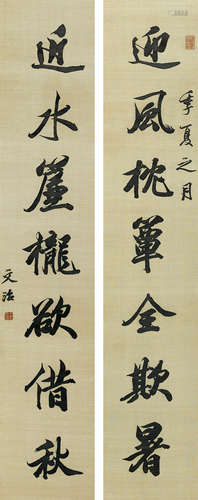 迎風枕簟全欺暑
季夏之月
近水簾櫳欲借秋
文治